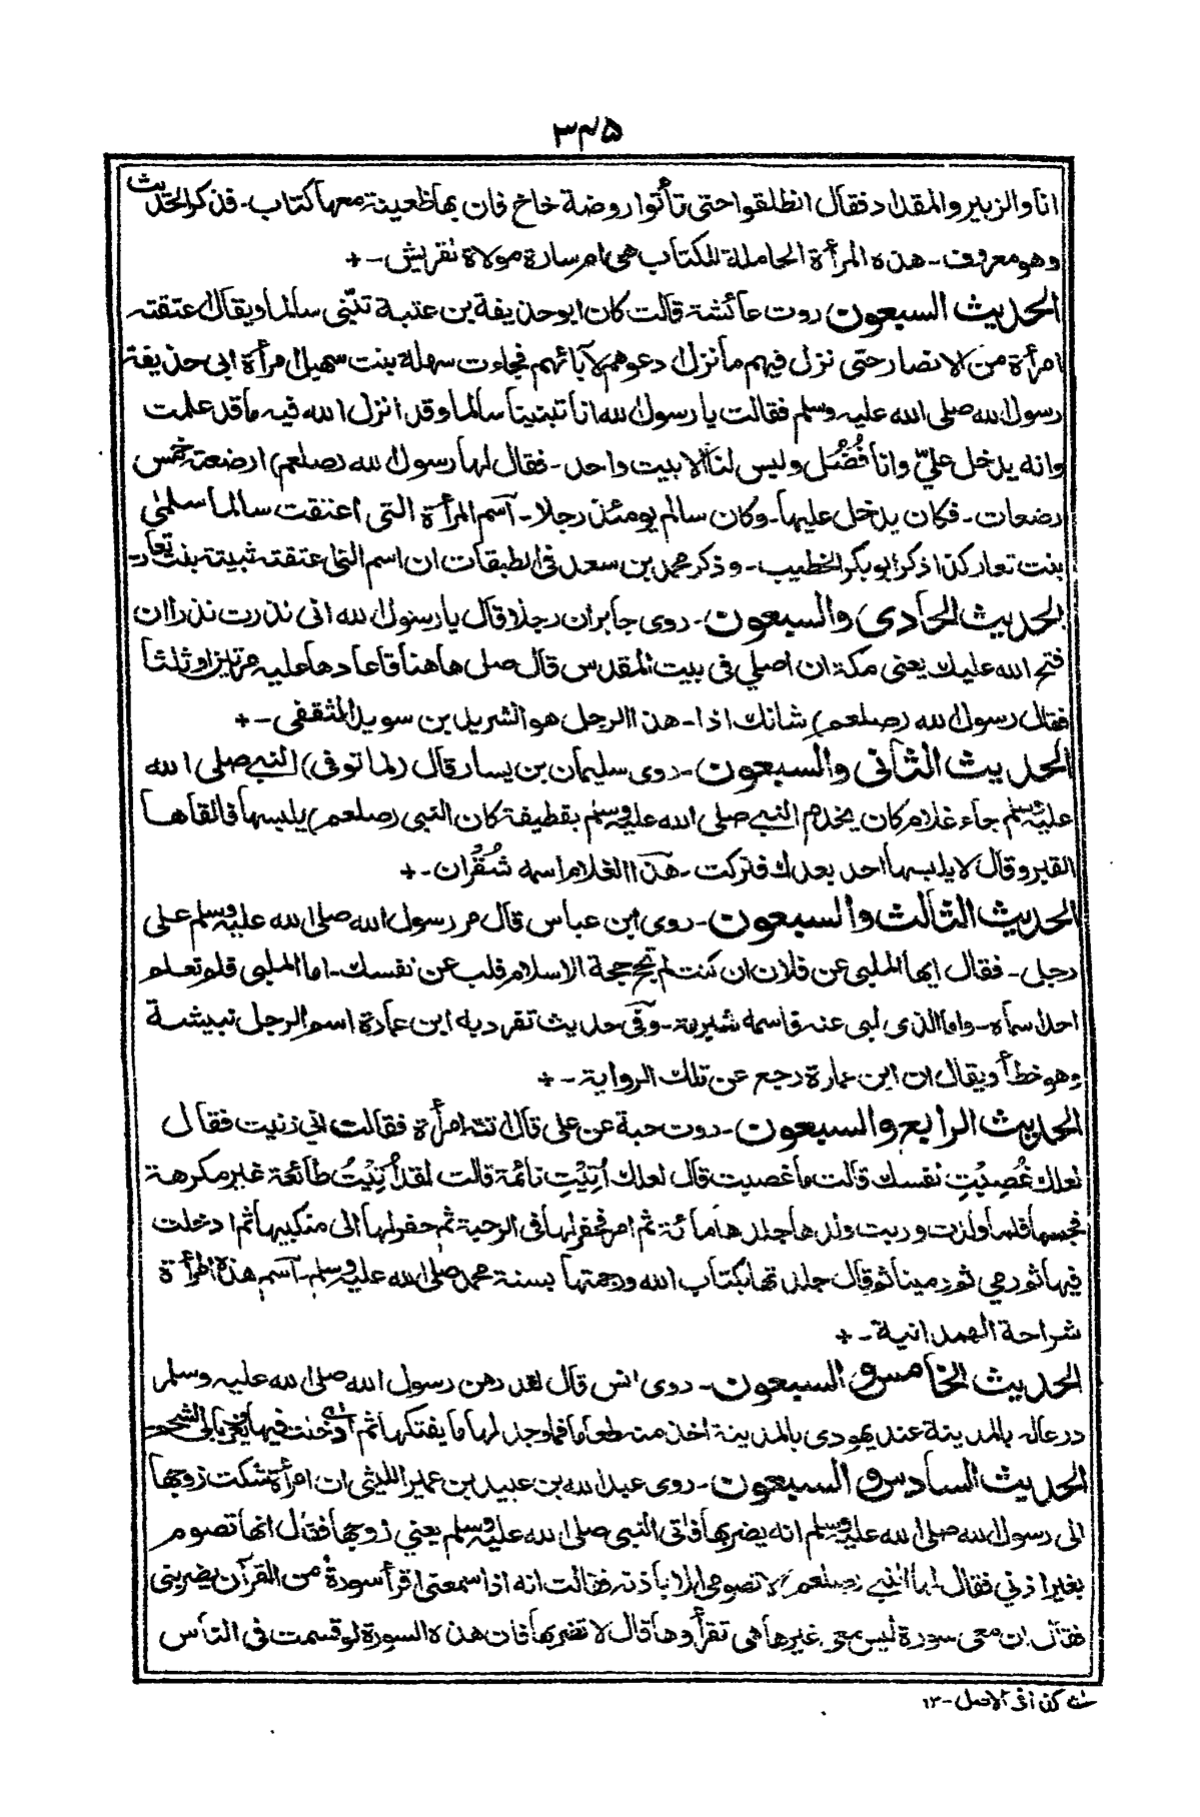 ٣٦٥
انا والزبير والمقداد فقال انطلقوا حتى تأتوا روضة خاخ فان بها ظعينة معها كتاب - فذكر الحديث
وهو معروف - هذه المرأة الحاملة للكتاب هى ام سارة مولاة لقريش - +
الحديث السبعون روت عائشة قالت كان ابو حذيفة بن عتبة تبنّى سالما ويقال اعتقته
امرأة من الانصار حتى نزل فيهم ما نزل ادعوهم لآبائهم فجاءت سهلة بنت سهيل امرأة ابى حذيفة
رسول الله صلى الله عليه وسلم فقالت يا رسول الله انا تبنينا سالما وقد انزل الله فيه ما قد علمت
وانه يدخل عليّ وانا فُضُل وليس لنا الا بيت واحد - فقال لها رسول الله (صلعم) ارضعته خمس
رضعات - فكان يدخل عليها - وكان سالم يومئذ رجلا - آسم المرأة التى اعتقت سالما سلمى
بنت تعار كذا ذكر ابو بكر الخطيب - وذكر محمد بن سعد فى الطبقات ان اسم التى اعتقته ثبيتة بنت تعار -
الحديث الحادى والسبعون - روى جابر ان رجلا قال يا رسول الله انى نذرت نذرا ان
فتح الله عليك يعنى مكة ان اصلي فى بيت المقدس قال صل هاهنا فاعادها عليه مرتين او ثلثا
فقال رسول الله (صلعم) شانك اذا - هذا الرجل هو الشريد بن سويد الثقفى - +
الحديث الثانى والسبعون - روى سليمان بن يسار قال (لما توفى) النبي صلى الله
عليه وسلم جاء غلام كان يخدم النبي صلى الله عليه وسلم بقطيفة كان النبى (صلعم) يلبسها فالقاها
القبر وقال لا يلبسها احد بعدك فتركت - هذا الغلام اسمه شُقْران - +
الحديث الثالث والسبعون - روى ابن عباس قال مر رسول الله صلى الله عليه وسلم على
رجل - فقال ايها الملبى عن فلان ان كنت لم تحج حجة الاسلام فلب عن نفسك - اما الملبى فلم تعلم
احدا سماه - واما الذى لبى عنه فاسمه شبرمة - وفى حديث تفرد به ابن عمارة اسم الرجل نبيشة
وهو خطأ ويقال ان ابن عمارة رجع عن تلك الرواية - +
الحديث الرابع والسبعون - روت حبة عن على قال اتته امرأة فقالت انى زنيت فقال
لعلك غُصِبْتِ نفسك قالت ما غصبت قال لعلك اُتِيْتِ نائمة قالت لقد اُتِيْتُ طائعة غير مكرهة
فحبسها فلما ولدت وربت ولدها جلدها مائة ثم امر فحفر لها فى الرحبة ثم حفر لها الى منكبيها ثم ادخلت
فيها ثم رمي ثم رمينا ثم قال جلدتها بكتاب الله ورجمتها بسنة محمد صلى الله عليه وسلم - آسم هذه المرأة
شراحة الهمدانية - +
الحديث الخامس و السبعون - روى انس قال لقد رهن رسول الله صلى الله عليه وسلم
درعا له بالمدينة عند يهودى بالمدينة اخذ منه طعاما فما وجد لها ما يفتكها
الحديث السادس و السبعون - روى عبد الله بن عبيد بن عمير الليثى ان امرأة شكت زوجها
الى رسول الله صلى الله عليه وسلم انه يضربها فاتى النبى صلى الله عليه وسلم يعني زوجها فقال انها تصوم
بغير اذني فقال لها النبي (صلعم) لا تصومى الا باذنه فقالت انه اذا سمعنى اقرأ سورة من القرآن يضربنى
فقال ان معى سورة ليس معى غيرها هى تقرأوها قال لا تضربها فان هذه السورة لو قسمت فى الناس
كذا فى الاصل - ١٢